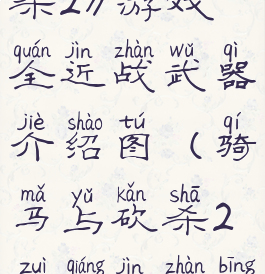 杀2》游戏
quán jìn zhàn wǔ qì
全近战武器
jiè shào tú qí
介绍图（骑
mǎ yǔ kǎn shā
马与砍杀2
zuì qiáng jìn zhàn bīng